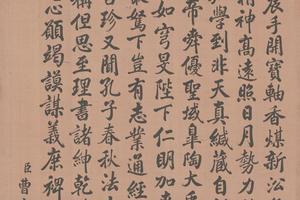 辰手開寶軸香煤新沁
精神高遠照日月勢力
學到非天真緘藏自
帝舜優聖域皐陶大
如穹旻陛下仁明加
最駑下豈有志業通經
古珍又聞孔子春秋法
稱但思至理書諸紳乾
心願竭謨謀義庶裨
臣曹